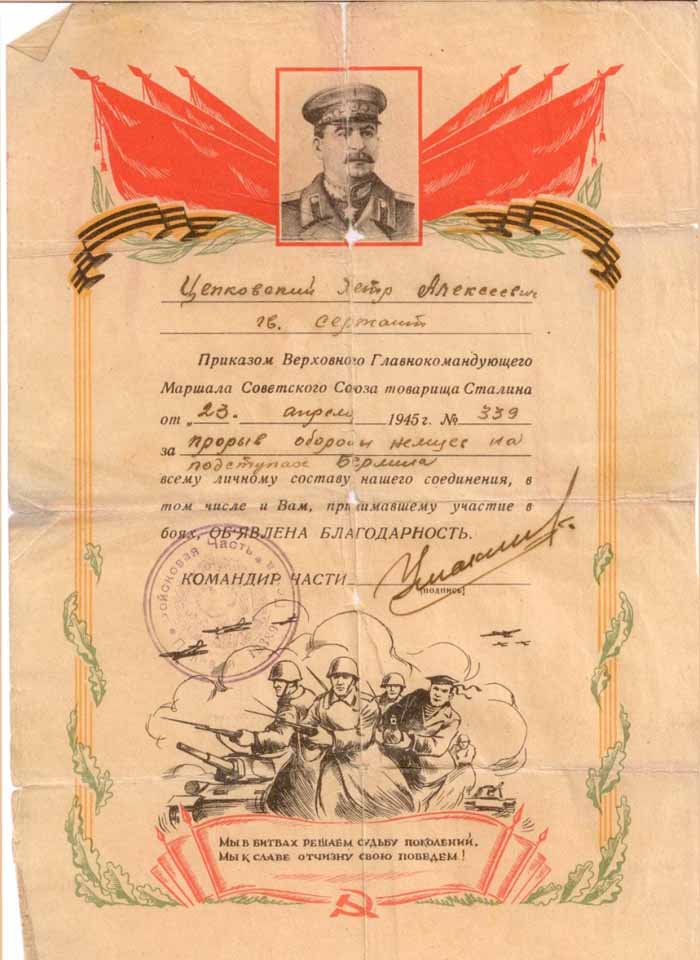 Цепковский Петр Алексеевич
гв. сержант
Приказом Верховного Главнокомандующего
Маршала Советского Союза товарища Сталина
от „23." апреля 1945 г. № 339
за прорыв обороны немцев на
подступах Берлина
всему личному составу нашего соединения, в
том числе и Вам, принимавшему участие в
боях, ОБ'ЯВЛЕНА БЛАГОДАРНОСТЬ.
КОМАНДИР ЧАСТИ
(подпись)
Войсковая Часть
МЫ В БИТВАХ РЕШАЕМ СУДЬБУ ПОКОЛЕНИЙ,
МЫ К СЛАВЕ ОТЧИЗНУ СВОЮ ПОВЕДЕМ!